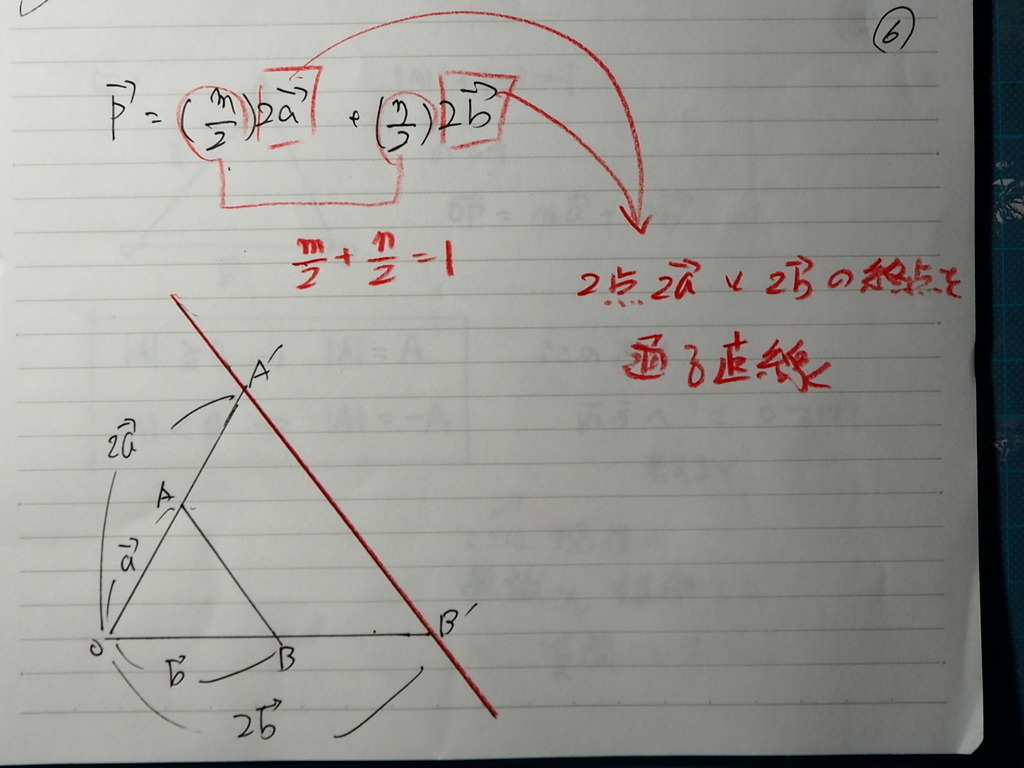 ⑥
p⃗ = (m/2) 2a⃗ + (n/2) 2b⃗
m/2 + n/2 = 1
2点 2a⃗ と 2b⃗ の終点を
通る直線
A′
2a⃗
A
a⃗
O
B′
b⃗
B
2b⃗